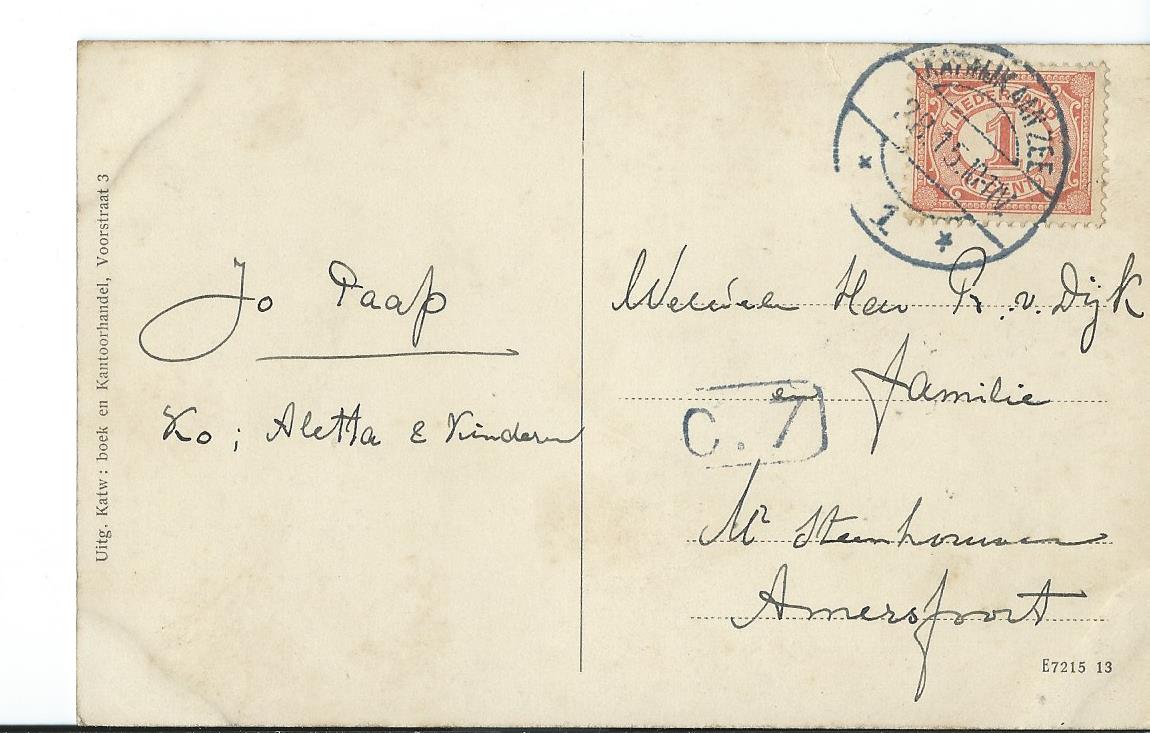 Uitg. Katw: boek en Kantoorhandel, Voorstraat 3
Jo Paap
Ko; Aletta & Kinderen
KATWIJK AAN ZEE
1
NEDERLAND
1
CENT
Heer v. Dijk
en familie
C. 7
Mr
Amersfoort
E7215 13